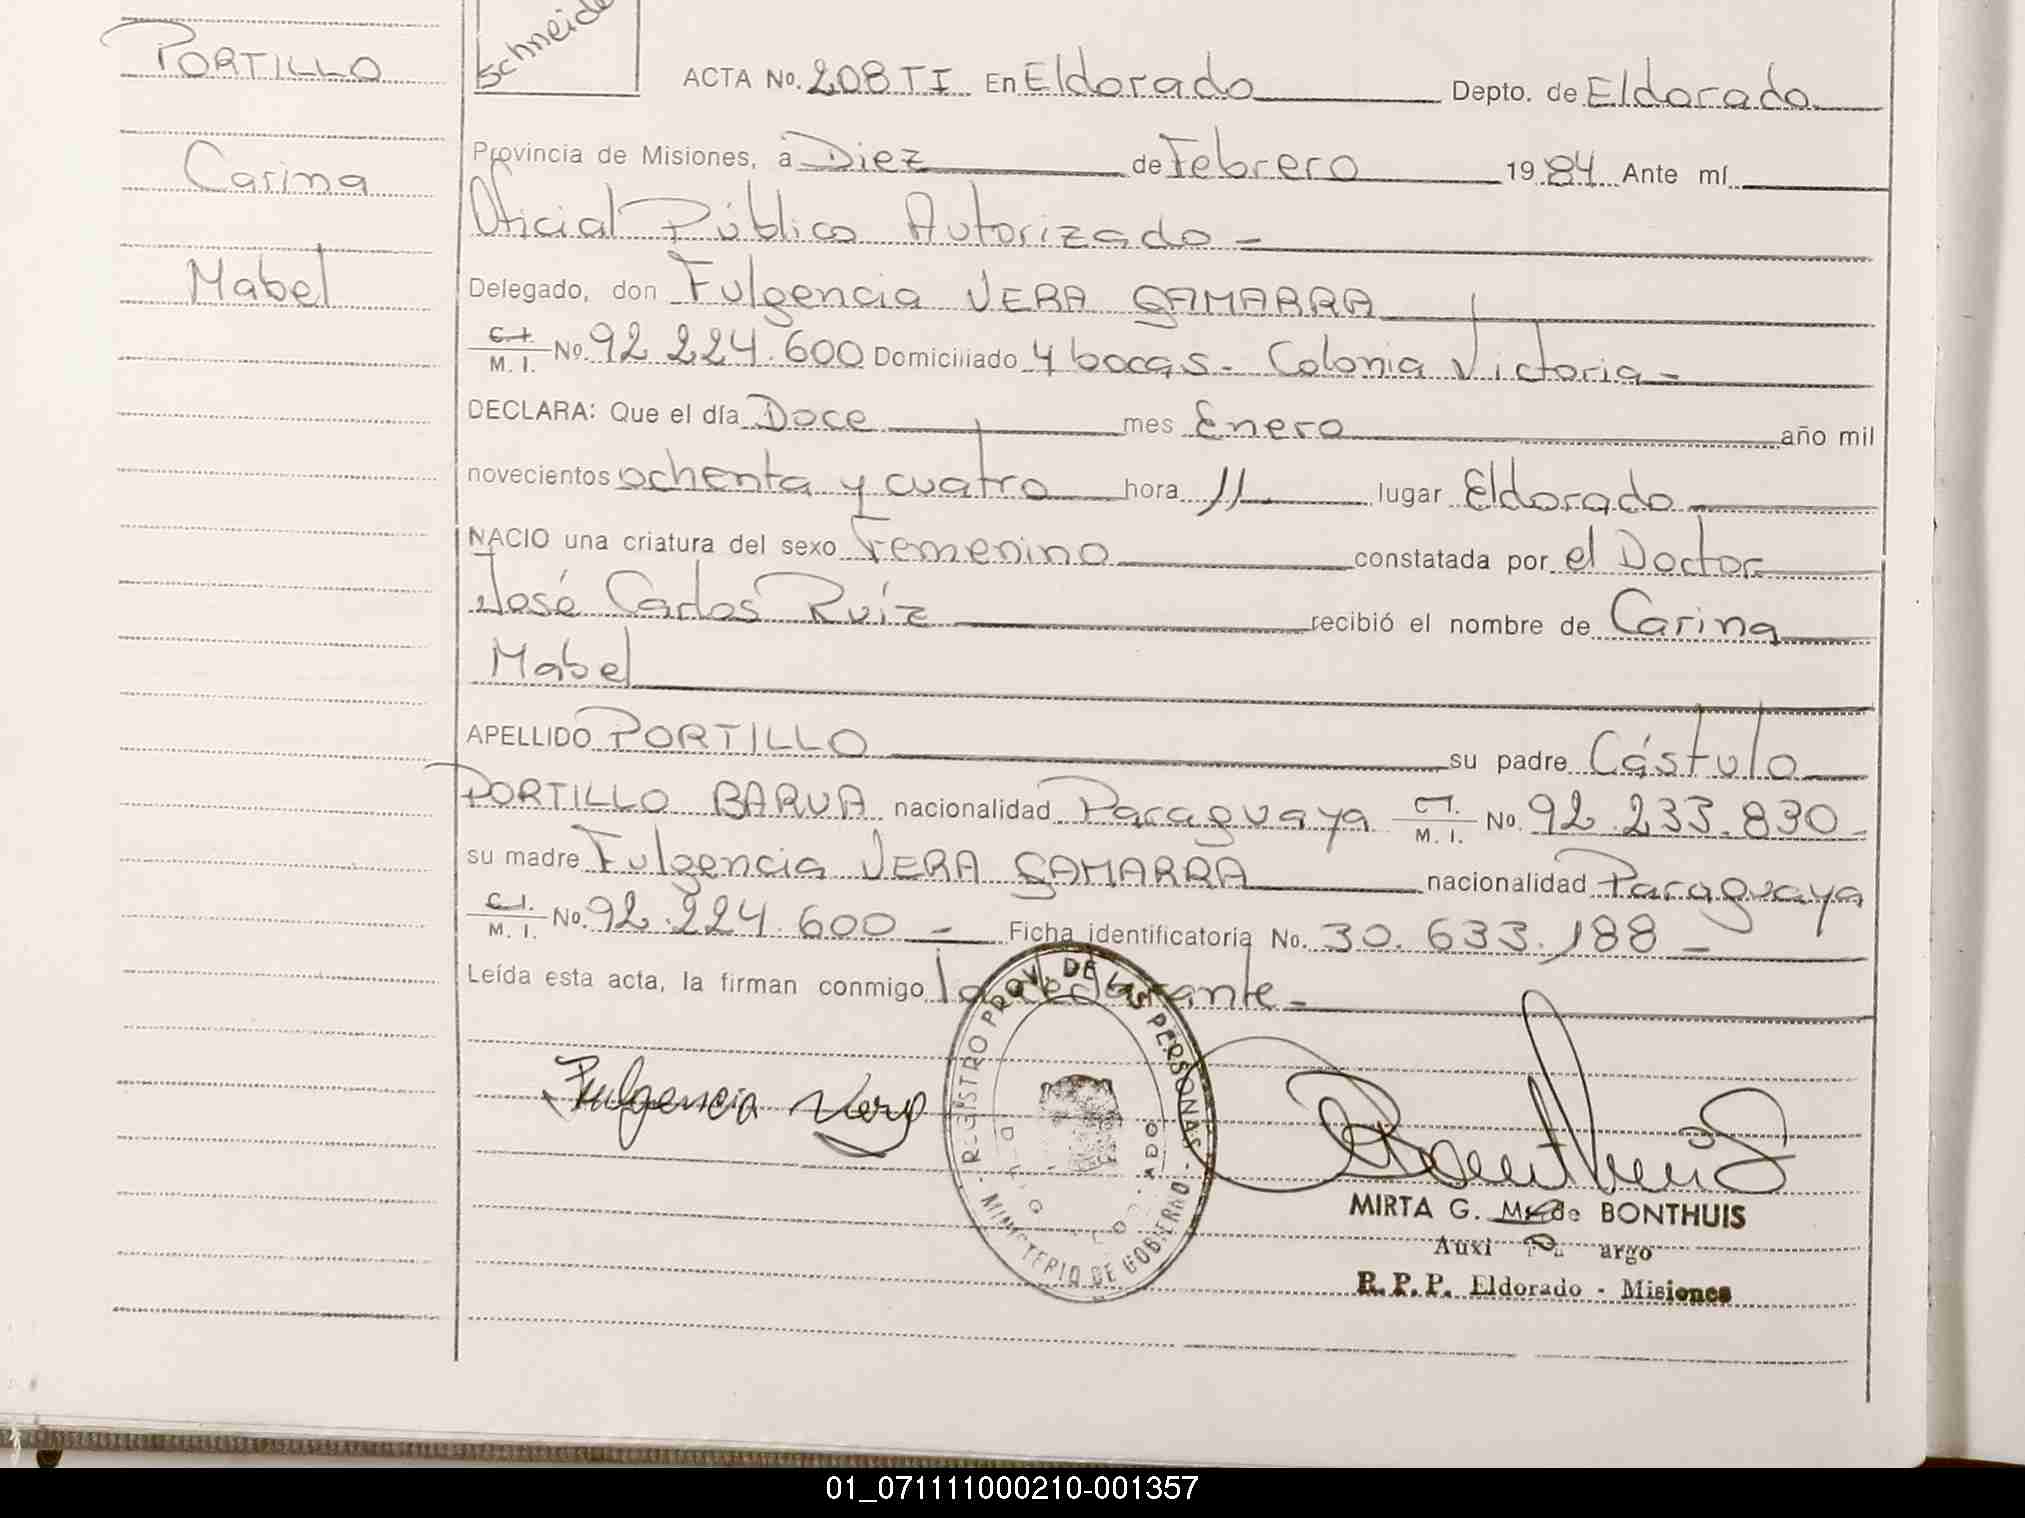 PORTILLO
Carina
Mabel
Schneide
ACTA No. 208 TI En Eldorado Depto. de Eldorado
Provincia de Misiones, a Diez de Febrero 1984 Ante mí
Oficial Público Autorizado -
Delegado, don Fulgencia VERA GAMARRA
C.I. M. I. Nº 92.224.600 Domiciliado 4 bocas - Colonia Victoria -
DECLARA: Que el día Doce mes Enero año mil
novecientos ochenta y cuatro hora 11 lugar Eldorado
NACIO una criatura del sexo Femenino constatada por el Doctor
José Carlos Ruíz recibió el nombre de Carina
Mabel
APELLIDO PORTILLO su padre Cástulo
PORTILLO BARUA nacionalidad Paraguaya C.I. M. I. No. 92.233.830 -
su madre Fulgencia VERA GAMARRA nacionalidad Paraguaya
C.I. M. I. No. 92.224.600 - Ficha identificatoria No. 30.633.188 -
Leída esta acta, la firman conmigo la declarante -
REGISTRO PROV. DE LAS PERSONAS
MINISTERIO DE GOBIERNO
Fulgencia Vera
Bonthuis
MIRTA G. de BONTHUIS
R.P.P. Eldorado - Misiones
01_071111000210-001357